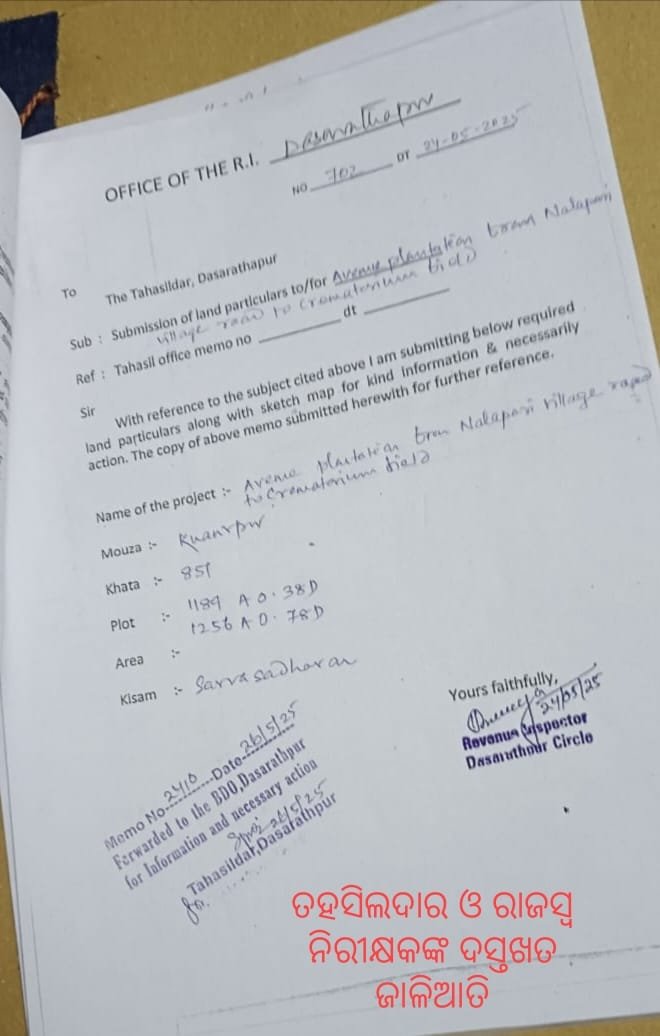 OFFICE OF THE R.I. Dasarathapur
NO 702 DT 24-05-2025
To The Tahasildar, Dasarathapur
Sub : Submission of land particulars to/for Avenue plantation from Nalapari
village road to Crematorium field
Ref : Tahasil office memo no dt
Sir
With reference to the subject cited above I am submitting below required
land particulars along with sketch map for kind information & necessarily
action. The copy of above memo submitted herewith for further reference.
Name of the project :- Avenue plantation from Nalapari village road
to Crematorium field
Mouza :- Kuanrpur
Khata :- 851
Plot :- 1189 A 0.38D
1256 A 0.78D
Area :-
Kisam :- Sarvasadharan
Yours faithfully,
24/05/25
Revenue Inspector
Dasarathpur Circle
Memo No 2410 Date 26/5/25
Forwarded to the BDO, Dasarathpur
for Information and necessary action
26/5/25
Tahasildar, Dasarathpur
ତହସିଲଦାର ଓ ରାଜସ୍ୱ
ନିରୀକ୍ଷକଙ୍କ ଦସ୍ତଖତ
ଜାଲିଆତି